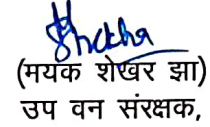 (मयंक शेखर झा)
उप वन संरक्षक,